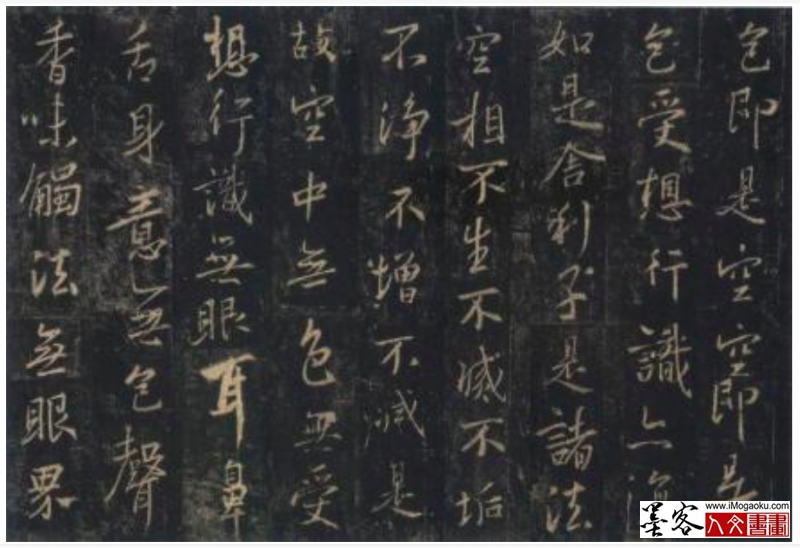 色即是空空即是
色受想行識亦復
如是舍利子是諸法
空相不生不滅不垢
不淨不增不減是
故空中無色無受
想行識無眼耳鼻
舌身意無色聲
香味觸法無眼界
www.iMogaoku.com
墨客
人文書畫